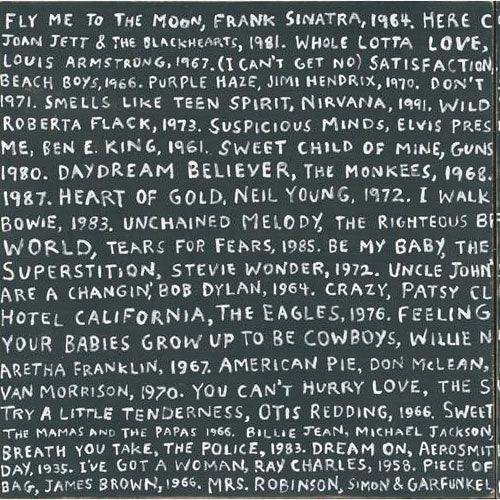 FLY ME TO THE MOON, FRANK SINATRA, 1964. HERE C
JOAN JETT & THE BLACKHEARTS, 1981. WHOLE LOTTA LOVE,
LOUIS ARMSTRONG, 1967. (I CAN'T GET NO) SATISFACTION
BEACH BOYS, 1966. PURPLE HAZE, JIMI HENDRIX, 1970. DON'T
1971. SMELLS LIKE TEEN SPIRIT, NIRVANA, 1991. WILD
ROBERTA FLACK, 1973. SUSPICIOUS MINDS, ELVIS PRES
ME, BEN E. KING, 1961. SWEET CHILD OF MINE, GUNS
1980. DAYDREAM BELIEVER, THE MONKEES, 1968.
1987. HEART OF GOLD, NEIL YOUNG, 1972. I WALK
BOWIE, 1983. UNCHAINED MELODY, THE RIGHTEOUS B
WORLD, TEARS FOR FEARS, 1985. BE MY BABY, THE
SUPERSTITION, STEVIE WONDER, 1972. UNCLE JOHN'
ARE A CHANGIN', BOB DYLAN, 1964. CRAZY, PATSY CL
HOTEL CALIFORNIA, THE EAGLES, 1976. FEELING
YOUR BABIES GROW UP TO BE COWBOYS, WILLIE N
ARETHA FRANKLIN, 1967. AMERICAN PIE, DON MCLEAN,
VAN MORRISON, 1970. YOU CAN'T HURRY LOVE, THE S
TRY A LITTLE TENDERNESS, OTIS REDDING, 1966. SWEET
THE MAMAS AND THE PAPAS 1966. BILLIE JEAN, MICHAEL JACKSON
BREATH YOU TAKE, THE POLICE, 1983. DREAM ON, AEROSMIT
DAY, 1935. I'VE GOT A WOMAN, RAY CHARLES, 1958. PIECE OF
BAG, JAMES BROWN, 1966. MRS. ROBINSON, SIMON & GARFUNKEL